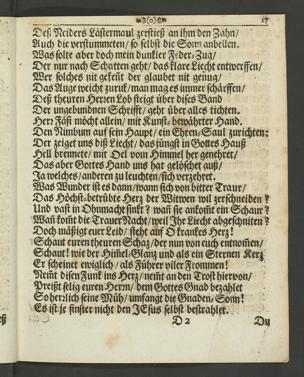 17
Deß Neiders Lästermaul zerstieß an ihm den Zahn/
Auch die verstummeten/ so selbst die Sonn anbellen.
Was solte aber doch mein dunkler Feder-Zug/
Der nur nach Schatten geht/ das klare Liecht entwerffen/
Wer solches nit gekeñt der glaubet nit genug/
Das Auge weicht zuruk/ man mag es immer schärffen/
Deß theuren Herren Lob steigt über dises Band
Der ungebundnen Schrifft/ geht über alles tichten.
Her Fäß möcht allein/ mit Kunst-bewährter Hand,
Den Nimbum auf sein Haupt/ ein Ehren-Saul zurichten:
Der zeiget uns diß Liecht/ das jüngst in Gottes Hauß
Hell brennete/ mit Oel vom Himmel her genehret/
Das aber Gottes Hand uns hat gelöschet auß/
Ja welches/ anderen zu leuchten/ sich verzehret.
Was Wunder ist es dann/ wann sich von bitter Traur/
Das Höchst-betrübte Herz der Witwen wil zerschneiden?
Und vast in Ohnmacht sinkt? wañ sie ankomt ein Schaur?
Wañ komt die Trauer Nacht/ weil Ihr Liecht abgeschniten?
Doch mäßigt euer Leid/ steht auf O krankes Herz!
Schaut euren theuren Schaz/ der nun von euch entnomen/
Schaut! wie der Himel Glanz und als ein Sternen Kerz
Er scheinet ewiglich/ als Führer viler Frommen!
Nemt disen Funk ins Herz/ nemt an den Trost hiervon/
Preißt selig euren Herrn/ dem Gottes Gnad bezahlet
So herzlich seine Müh/ umfangt die Gnaden-Sonn!
Es ist je finster nicht den JEsus selbst bestrahlet.
D 2 Du